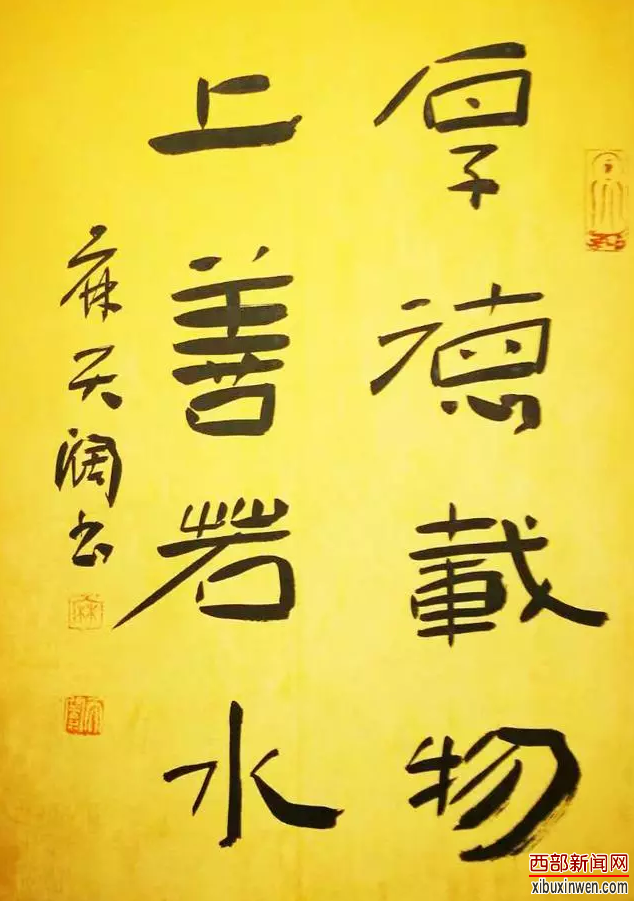 厚德載物
上善若水
麻天阔书
西部新闻网
xibuxinwen.com